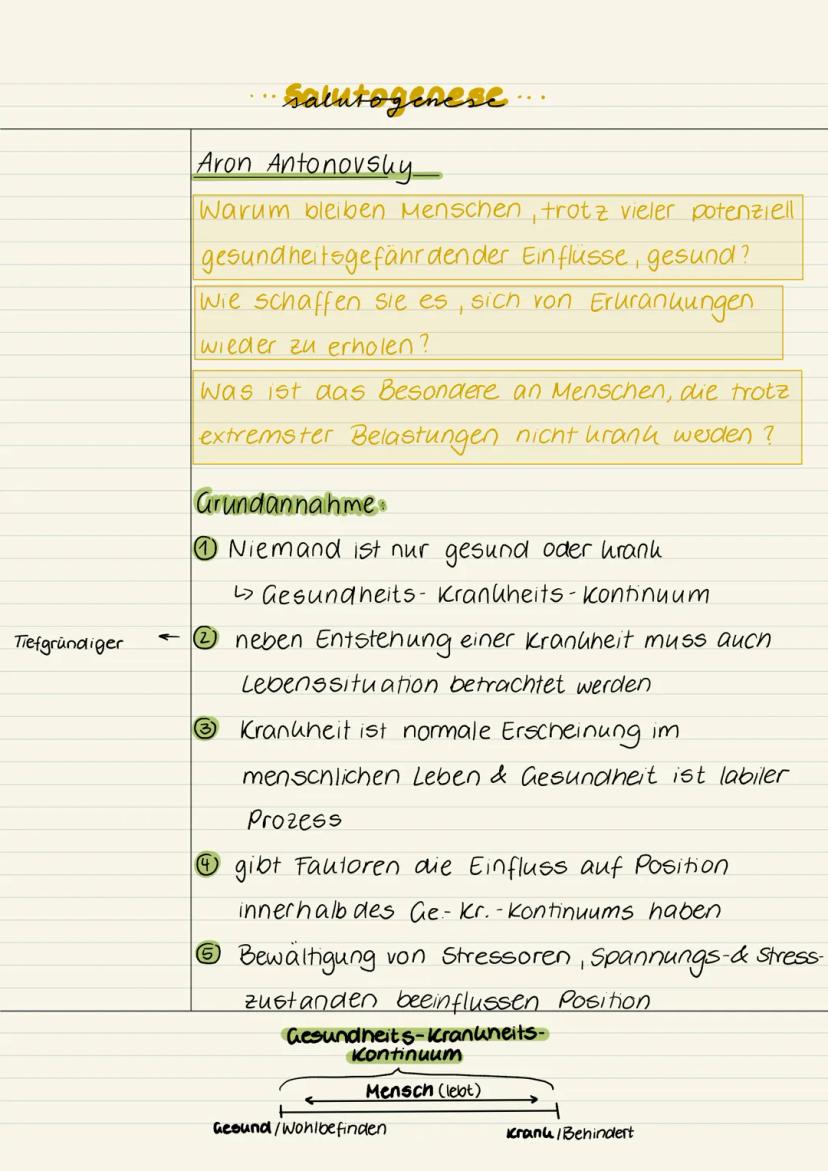 ... Salutogenese ...
Aron Antonovsky
Warum bleiben Menschen, trotz vieler potenziell
gesundheitsgefährdender Einflüsse, gesund?
Wie schaffen sie es, sich von Erkrankungen
wieder zu erholen?
Was ist das Besondere an Menschen, die trotz
extremster Belastungen nicht krank werden?
Grundannahme:
① Niemand ist nur gesund oder krank
↳ Gesundheits-Krankheits-Kontinuum
Tiefgründiger ← ② neben Entstehung einer Krankheit muss auch
Lebenssituation betrachtet werden
③ Krankheit ist normale Erscheinung im
menschlichen Leben & Gesundheit ist labiler
Prozess
④ gibt Faktoren die Einfluss auf Position
innerhalb des Ge.-Kr.-Kontinuums haben
⑤ Bewältigung von Stressoren, Spannungs-& Stress-
zustanden beeinflussen Position
Gesundheits-Krankheits-
Kontinuum
Mensch (lebt)
Gesund/Wohlbefinden Krank/Behindert